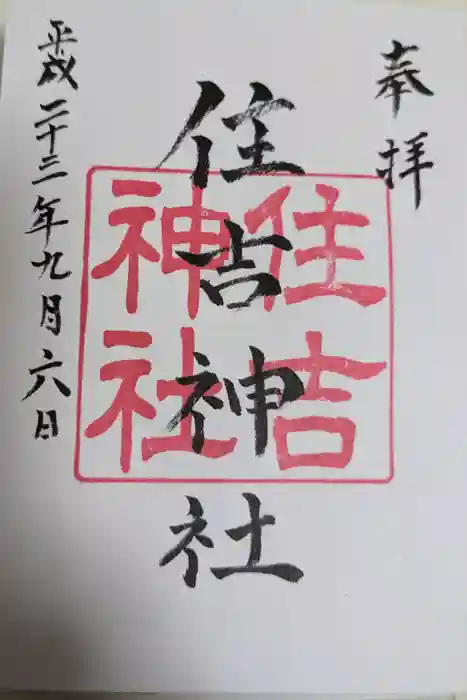 奉拝
住吉神社
住吉
神社
平成二十三年九月六日